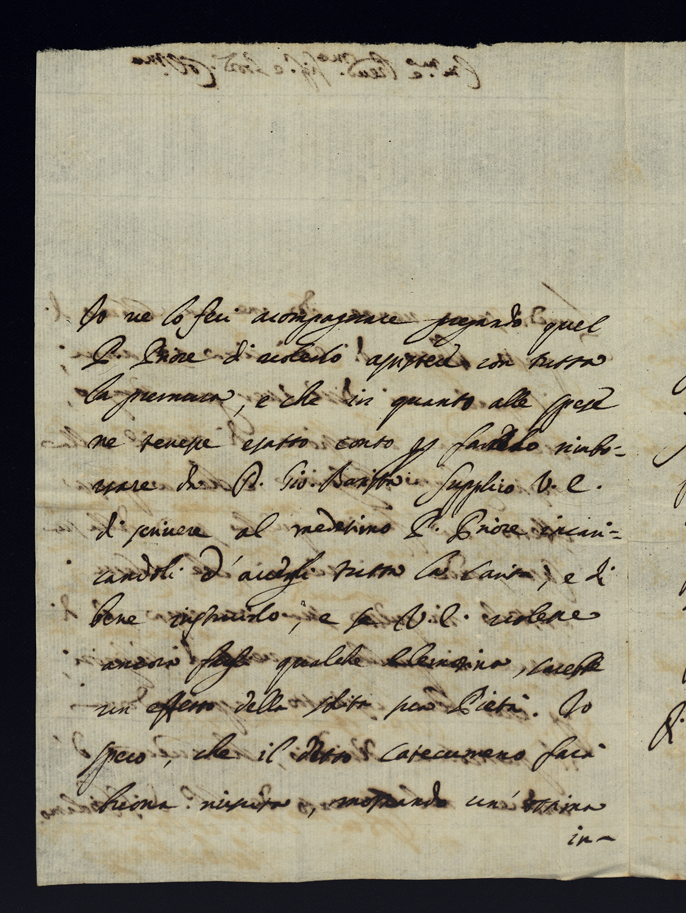 Io ve lo feci accompagnare pregando quel
P. Priore di volerlo assistere con tutta
la premura, e che in quanto alle spese
ne tenesse esatto conto p farselo rimbo=
rsare da P. Gio Battista Supplico V. E.
di scrivere al medesimo P. Priore incari=
candoli d'aicegli tutta la carità, e di
bene instruirlo, e se V. E. volesse
ancora fargli qualche elemosina, sarebbe
un effetto della solita sua Pietà. Io
spero, che il detto Catecumeno farà
buona riuscita, mostrando un'ottima
in=